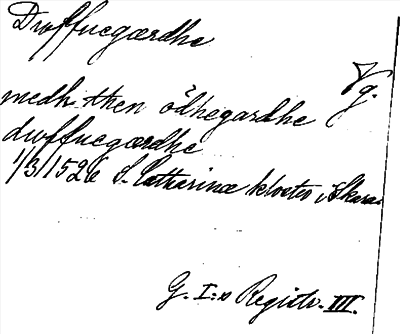 Druffnegærdhe
Vg.
medh then ödhegardhe
druffnegærdhe
1/3 1526 S. Catharinæ kloster i Skara
G. I:s Registr. III.